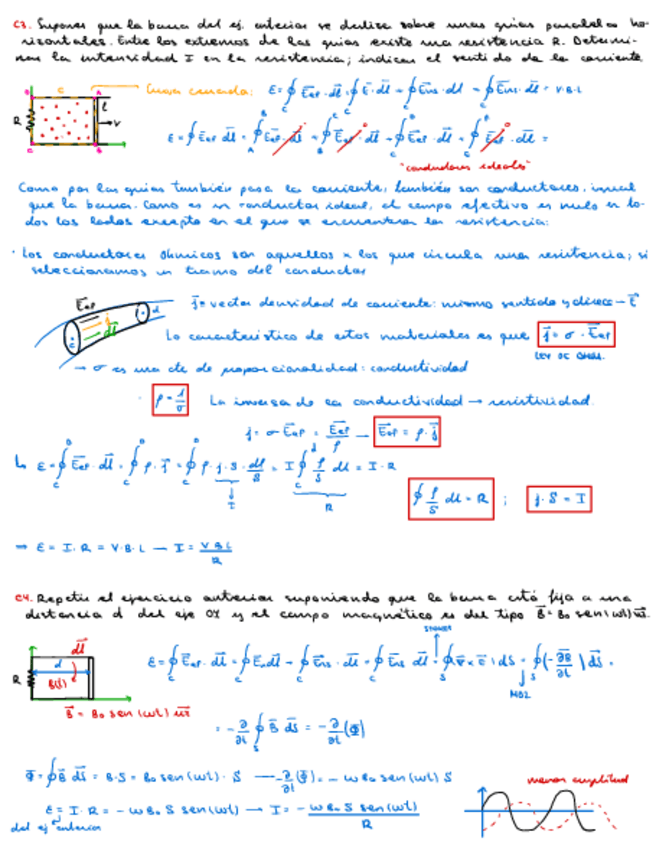 C3. Supones que la barra del ej. anterior se desliza sobre unas guías paralelas ho-
rizontales. Entre los extremos de las guías existe una resistencia R. Determi-
nar la intensidad I en la resistencia; indicar el sentido de la corriente
curva cerrada: ε = ∮ Eef · dl = ∮ E · dl + ∮ Ens · dl = ∮ Ens · dl = v·B·L
R l v
ε = ∮ Eef · dl = ∮ Eef · dl + ∮ Eef · dl + ∮ Eef · dl + ∮ Eef · dl =
"conductores ideales"
Como por las guías también pasa la corriente, también son conductores, igual
que la barra. Como es un conductor ideal, el campo efectivo es nulo en to-
dos los lados excepto en el que se encuentra la resistencia:
· Los conductores óhmicos son aquellos x los que circula una resistencia; si
seleccionamos un tramo del conductor
Eef j dl
j = vector densidad de corriente: mismo sentido y direcc – E
Lo característico de estos materiales es que j = σ · Eef
LEY DE OHM.
→ σ es una cte de proporcionalidad: conductividad
ρ = 1/σ La inversa de la conductividad → resistividad.
j = σ Eef = Eef/ρ — Eef = ρ · j
ε = ∮ Eef · dl = ∮ ρ · j = ∮ ρ · j · S · dl/S = I ∮ ρ/S dl = I · R
I R
∮ ρ/S dl = R ; j · S = I
→ ε = I · R = V · B · L — I = VBL/R
C4. Repetir el ejercicio anterior suponiendo que la barra está fija a una
distancia d del eje OY y el campo magnético es del tipo B = B₀ sen(wt) uz.
STOKES
R d dl B(t)
ε = ∮ Eef · dl = ∮ E dl + ∮ Ens · dl = ∮ Ens dl = ∮ (∇ × E) dS = ∮ (-∂B/∂t) dS =
B = B₀ sen(wt) uz
= -∂/∂t ∮ B dS = -∂/∂t (Φ)
Φ = ∮ B dS = B·S = B₀ sen(wt) · S — -∂/∂t (Φ) = -w B₀ sen(wt) S
menor amplitud
ε = I · R = -w B₀ S sen(wt) → I = - w B₀ S sen(wt)/R
del ej anterior